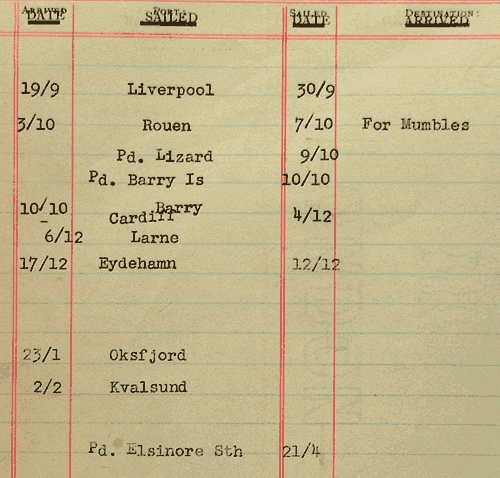 ARRIVED DATE PORT: SAILED SAILED DATE DESTINATION: ARRIVED
19/9 Liverpool 30/9
3/10 Rouen 7/10 For Mumbles
Pd. Lizard 9/10
Pd. Barry Is 10/10
10/10 Barry
Cardiff 4/12
6/12 Larne
17/12 Eydehamn 12/12
23/1 Oksfjord
2/2 Kvalsund
Pd. Elsinore Sth 21/4